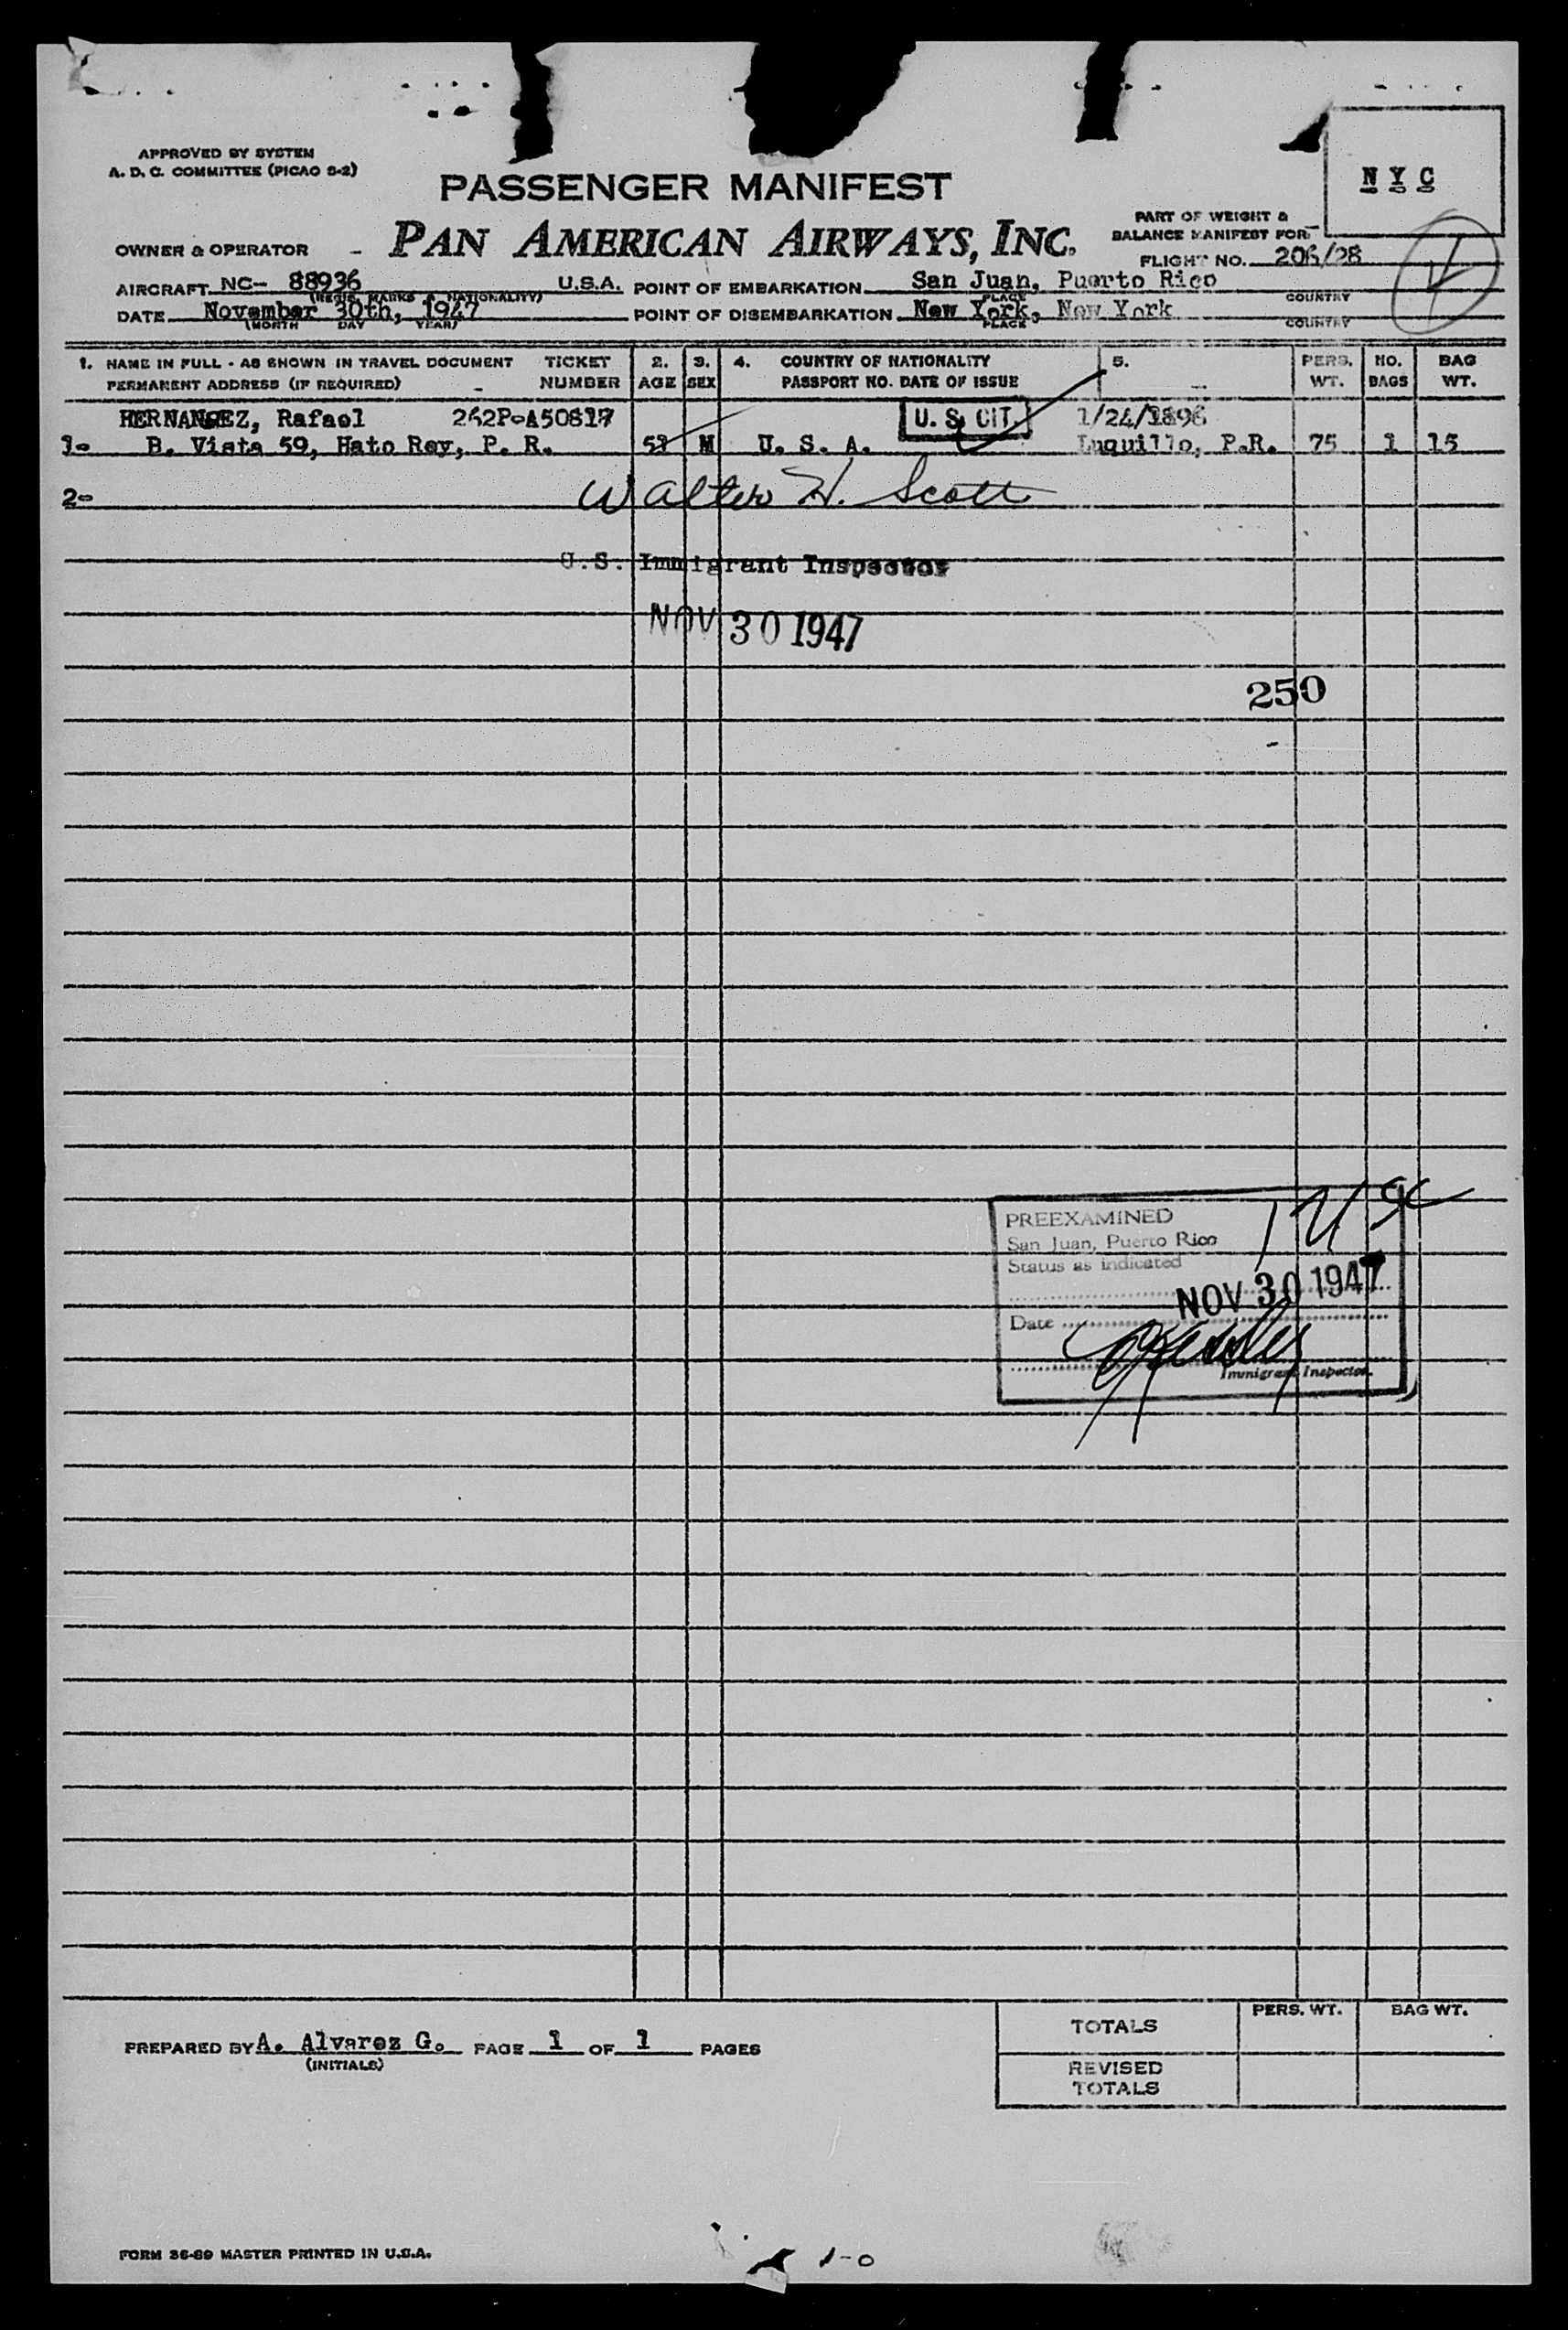 APPROVED BY SYSTEM
A. D. C. COMMITTEE (PICAO S-2)
NYC
PASSENGER MANIFEST
PART OF WEIGHT &
BALANCE MANIFEST FOR
OWNER & OPERATOR - PAN AMERICAN AIRWAYS, INC.
FLIGHT NO. 206/28
AIRCRAFT NC- 88936 U.S.A. POINT OF EMBARKATION San Juan, Puerto Rico
(REGIS. MARKS & NATIONALITY) PLACE COUNTRY
DATE November 30th, 1947 POINT OF DISEMBARKATION New York, New York
(MONTH DAY YEAR) PLACE COUNTRY
1. NAME IN FULL - AS SHOWN IN TRAVEL DOCUMENT TICKET 2. 3. 4. COUNTRY OF NATIONALITY 5. PERS. NO. BAG
PERMANENT ADDRESS (IF REQUIRED) - NUMBER AGE SEX PASSPORT NO. DATE OF ISSUE WT. BAGS WT.
HERNANDEZ, Rafael U. S. CIT. 1/24/1896
1- B. Vista 59, Hato Rey, P. R. M U. S. A. Luquillo, P.R. 75 1 15
2- Walter H. Scott
U.S. Immigrant Inspector
NOV 30 1947
250
PREEXAMINED
San Juan, Puerto Rico
Status as indicated
NOV 30 1947
Date
Immigrant Inspector.
PREPARED BY A. Alvarez G. PAGE 1 OF 1 PAGES
(INITIALS)
PERS. WT. BAG WT.
TOTALS
REVISED
TOTALS
FORM 36-89 MASTER PRINTED IN U.S.A.
1-0